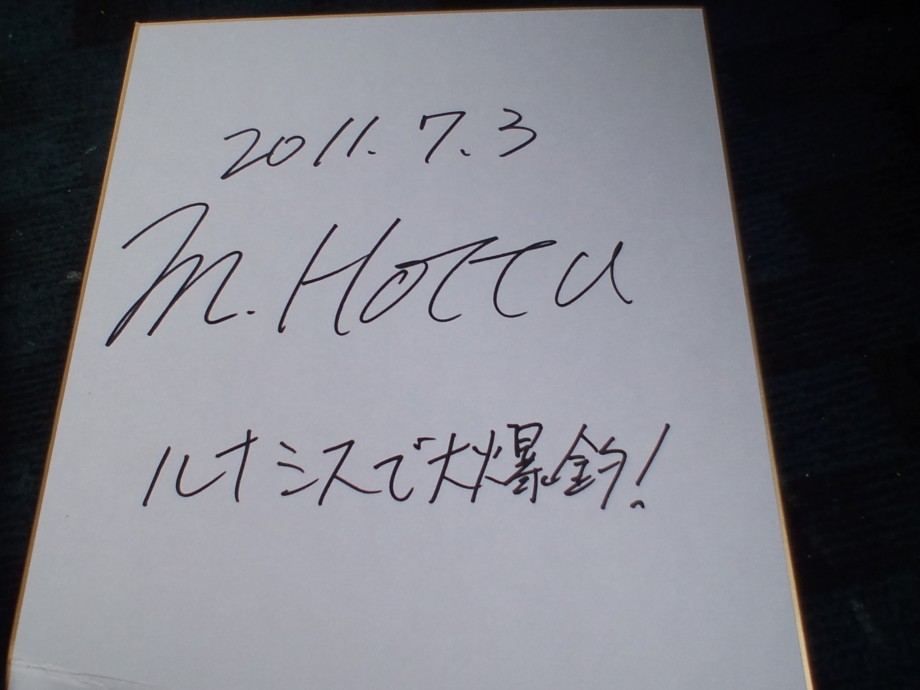 2011.7.3
M.Hotta
ルナミスで大爆釣!